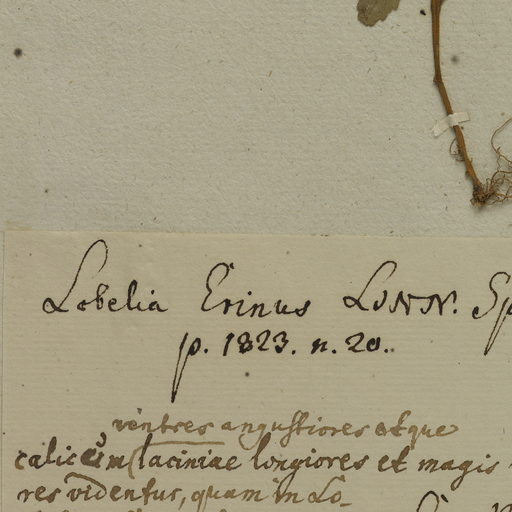 Lobelia Erinus LINN. Sp
p. 1823. n. 20.
angustiores atque
calicum laciniae longiores et magis
res videntur, quam in Lo-